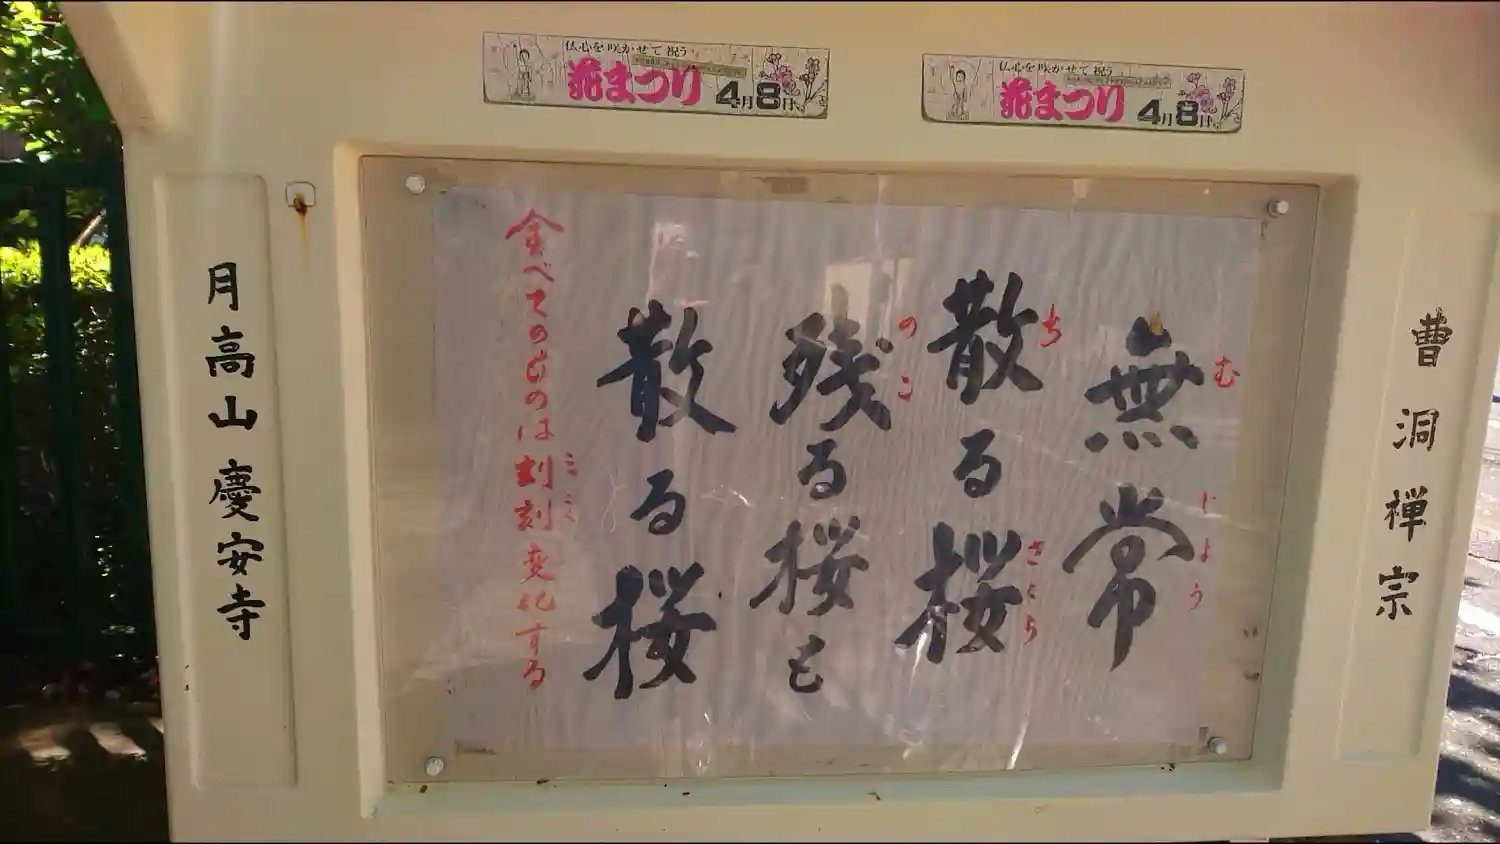 仏心を咲かせて祝う
花まつり 4月8日
仏心を咲かせて祝う
花まつり 4月8日
曹洞禅宗
無常
むじょう
散る桜
ち さくら
残る桜も
のこ
散る桜
全べてのものは刻刻変化する
こくこく
月高山慶安寺